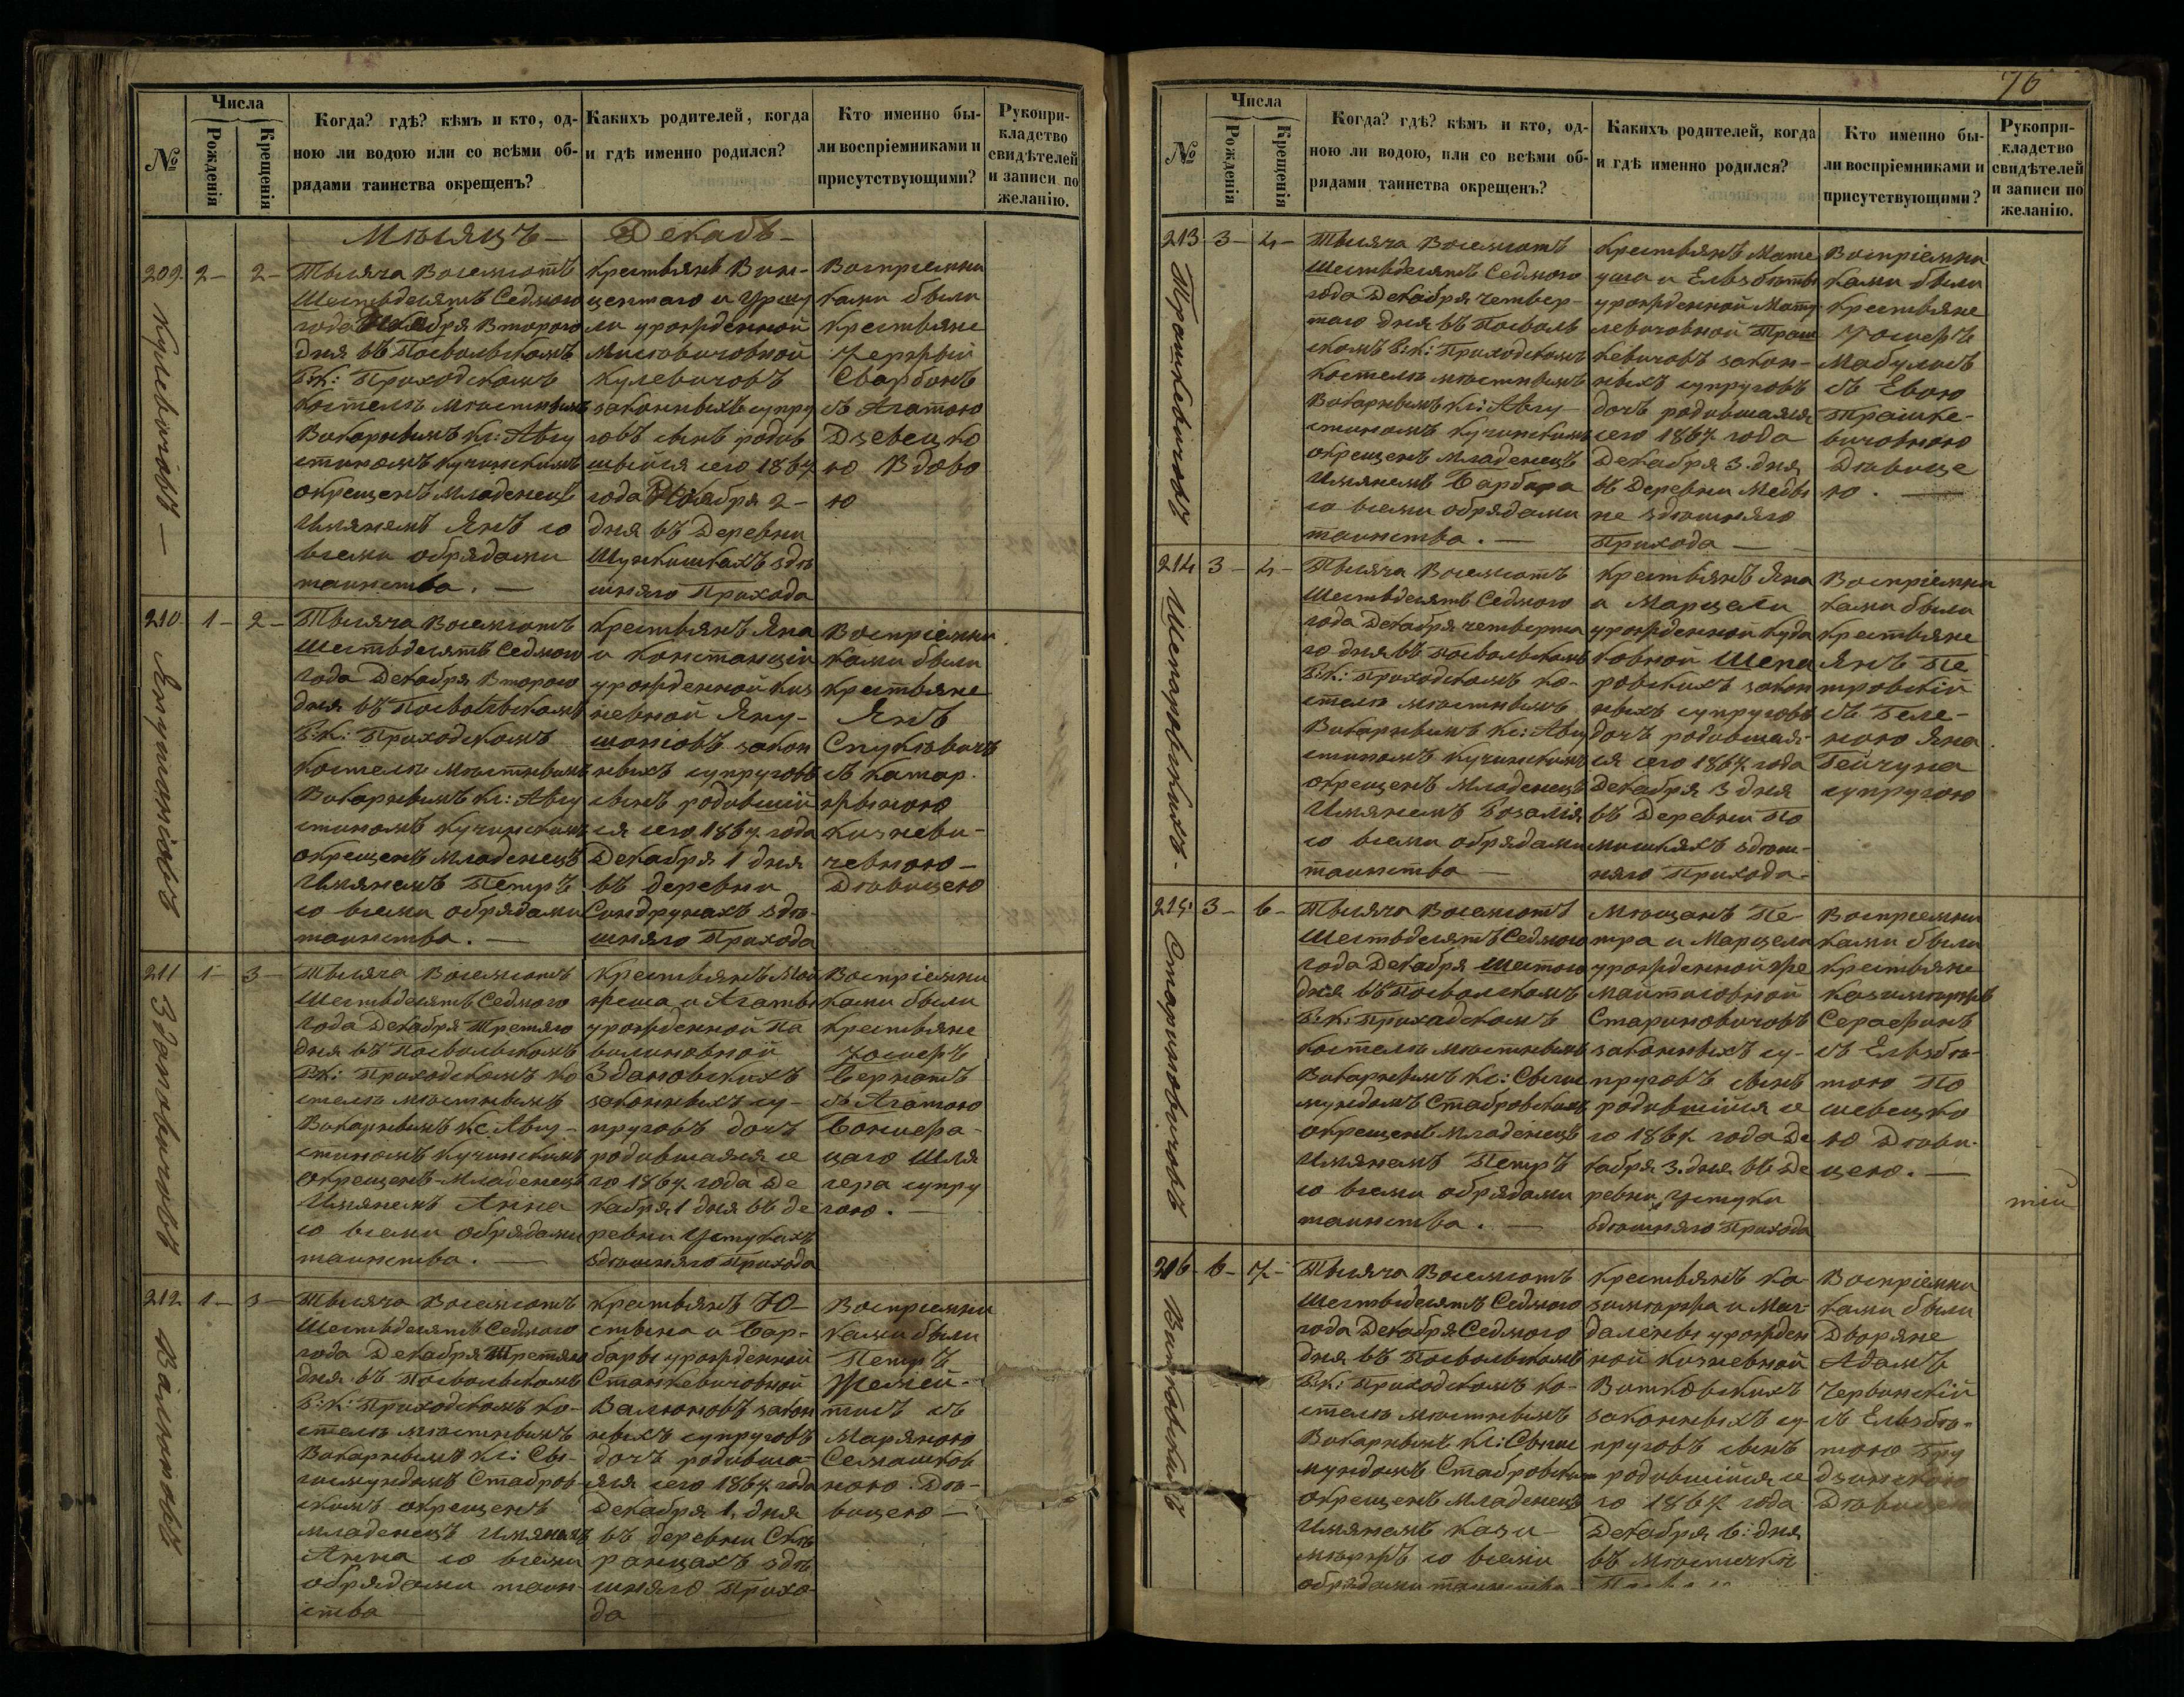 №
Числа
Рожденія
Крещенія
Когда? гдѣ? кѣмъ и кто, од-
ною ли водою или со всѣми об-
рядами таинства окрещенъ?
Какихъ родителей, когда
и гдѣ именно родился?
Кто именно бы-
ли воспріемниками и
присутствующими?
Рукопри-
кладство
свидѣтелей
и записи по
желанію.
Мѣсяцъ — Декабь —
209. 2 — 2 —
Кулевичовъ —
Тысяча Восемсотъ
Шестьдесятъ Седмого
года Декабря Второго
дня въ Посвольскомъ
Р:К: Приходскомъ
Костелѣ мѣстнымъ
Викарнымъ Кс: Авгу
стиномъ Кучинскимъ
окрещенъ младенецъ
Имянемъ Янъ со
всеми обрядами
таинства. —
Крестьянъ Вин-
центаго и Уршу
ли урожденной
Мисювичовной
Кулевичовъ
законныхъ супру
говъ сынъ родив
шыйся сего 1867
года Декабря 2 —
дня въ Деревни
здѣ
шняго Прихода
Воспріемни
ками были
Крестьяне
Сварбунъ
съ Агатою
Дзевецко
ю Вдово
ю
210 1 — 2 —
Янушонісовъ
Тысяча Восемсотъ
Шестьдесятъ Седмого
года Декабря Второго
дня въ Посвольскомъ
Р:К: Приходскомъ
Костелѣ Мѣстнымъ
Викарнымъ Кс: Авгу
стиномъ Кучинскимъ
окрещенъ Младенецъ
Имянемъ Петръ
со всеми обрядами
таинства. —
Крестьянъ Яна
и Констанціи
урожденной Киз
невной Яну-
шонісовъ закон
ныхъ супруговъ
сынъ родившій
ся сего 1867 года
Декабря 1 дня
въ деревни
Синдрунахъ здѣ-
шняго Прихода
Воспріемни
ками были
Крестьяне
Янъ
съ Катар
жыною
Кизневи-
чевною —
Дѣвицею
211 1 — 3 —
Здановичовъ
Тысяча Восемсотъ
Шестьдесятъ Седмого
года Декабря Третяго
дня въ Посвольскомъ
Р:К: Приходскомъ Ко
стелѣ мѣстнымъ
Викарнымъ Кс. Авгу-
стиномъ Кучинскимъ
окрещенъ Младенецъ
Имянемъ Анна
со всеми обрядами
таинства. —
Крестьянъ Мой
жеша и Агаты
урожденной Па
вилиовной
Здановскихъ
законныхъ су-
пруговъ дочъ
родившаяся се
го 1867 года Де
кабря 1 дня въ де
ревни Устукахъ
здѣшняго Прихода
Воспріемни
ками были
Крестьяне
Іосифъ
Бернатъ
съ Агатою
Бонифа-
цаго Шля
гера супру
гою. —
212 1 — 3 —
Валюновъ
Тысяча Восемсотъ
Шестьдесятъ Седмого
года Декабря Третяго
дня въ Посвольскомъ
Р:К: Приходскомъ Ко-
стелѣ мѣстнымъ
Викарнымъ Кс: Сы-
гисмундомъ Стабров-
скимъ окрещенъ
младенецъ Имянемъ
Анна со всеми
обрядами таин-
ства —
Крестьянъ Ю-
стына и Бар-
бары урожденной
Станкевичовной
Валюновъ закон
ныхъ супруговъ
дочъ родивша-
яся сего 1867 года
Декабря 1. дня
въ деревни Скѣ
ранцахъ здѣ
шняго Прихо-
да
Воспріемни
ками были
Петръ
съ
Маряною
Семашков
ною Дѣ-
вицею —
76
№
Числа
Рожденія
Крещенія
Когда? гдѣ? кѣмъ и кто, од-
ною ли водою, или со всѣми об-
рядами таинства окрещенъ?
Какихъ родителей, когда
и гдѣ именно родился?
Кто именно бы-
ли воспріемниками и
присутствующими?
Рукопри-
кладство
свидѣтелей
и записи по
желанію.
213 3 — 4 —
Трашкевичовъ
Тысяча Восемсотъ
Шестьдесятъ Седмого
года Декабря четвер-
таго дня въ Посволь
скомъ Р:К: Приходскомъ
Костелѣ мѣстнымъ
Викарнымъ Кс: Авгу-
стиномъ Кучинскимъ
окрещенъ младенецъ
Имянемъ Барбара
со всеми обрядами
таинства. —
Крестьянъ Мате
уша и Ельзбѣты
урожденной Мату
левичовной Траш
кевичовъ закон-
ныхъ супруговъ
дочъ родившаяся
сего 1867 года
Декабря 3. дня
въ Деревни Меды
не здѣшняго
Прихода —
Воспріемни
ками были
Крестьяне
Іосифъ
Мабулисъ
съ Евою
Трашке-
вичовною
Дѣвице
ю. —
214 3 — 4 —
Шепаровскихъ —
Тысяча Восемсотъ
Шестьдесятъ Седмого
года Декабря четверта
го дня въ Посвольскомъ
Р:К: Приходскомъ Ко-
стелѣ мѣстнымъ
Викарнымъ Кс: Авгу
стиномъ Кучинскимъ
окрещенъ Младенецъ
Имянемъ Розалія
со всеми обрядами
таинства —
Крестьянъ Яна
и Марцели
урожденной Куда
ковной Шепа
ровскихъ закон
ныхъ супруговъ
дочъ родившая
ся сего 1867 года
Декабря 3 дня
въ Деревни По
мишкяхъ здѣш-
няго Прихода —
Воспріемни
ками были
Крестьяне
Янъ Пе
тровскій
съ Геле-
ною Яна
Гейчуна
супругою
215 3 — 6 —
Стариновичовъ
Тысяча Восемсотъ
Шестьдесятъ Седмого
года Декабря Шестого
дня въ Посволскомъ
Р:К: Приходскомъ
Костелѣ мѣстнымъ
Викарнымъ Кс: Сыгис
мундомъ Стабровскимъ
окрещенъ Младенецъ
Имянемъ Петръ
со всеми обрядами
таинства. —
Мѣщанъ Пе-
тра и Марцели
урожденной Же
майтисовной
Стариновичовъ
законныхъ су-
пруговъ сынъ
родившійся се
го 1867 года Де
кабря 3. дня въ Де
ревни Устуки
здѣшняго Прихода
Воспріемни
ками были
Крестьяне
Казимиръ
Серафинъ
съ Ельзбѣ-
тою По
шевецко
ю Дѣви-
цею. —
216 6 — 7 —
Витковскихъ
Тысяча Восемсотъ
Шестьдесятъ Седмого
года Декабря Седмого
дня въ Посвольскомъ
Р:К: Приходскомъ Ко-
стелѣ мѣстнымъ
Викарнымъ Кс: Сыгис
мундомъ Стабровским
окрещенъ Младенецъ
Имянемъ Кази-
мѣржъ со всеми
обрядами таинства
Крестьянъ Ка-
зимѣржа и Маг-
далены урожден
ной Кизневной
Витковскихъ
законныхъ су-
пруговъ сынъ
родившійся се
го 1867 года
Декабря 6: дня
въ Мѣстечкѣ
Воспріемни
ками были
Дворяне
Адамъ
Червинскій
съ Ельзбѣ-
тою Гру
дзинскою
Дѣвицею